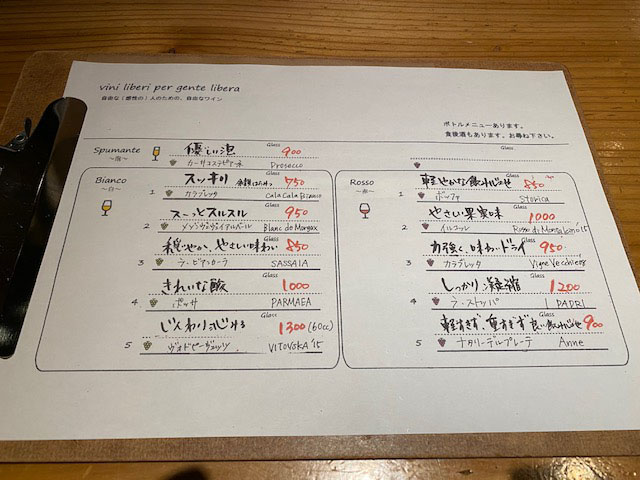 vini liberi per gente libera
自由な（感性の）人のための、自由なワイン
ボトルメニューあります。
食後酒もあります。お尋ね下さい。
Spumante
～泡～
優しい泡
Glass
900
Prosecco
Glass
Bianco
～白～
スッキリ
Glass
750
1
カラブレッタ
CalaCala Bianco
スーっとスルスル
Glass
950
2
Blanc de Morgex
穏やか、やさしい味わい
Glass
850
3
SASSAIA
きれいな酸
Glass
1000
4
PARMAEA
じんわり
Glass
1300 (60cc)
5
ヴォドピーヴェッツ
VITOVSKA '15
Rosso
～赤～
軽やかな飲み心地
Glass
850
1
Storica
やさしい果実味
Glass
1000
2
Rosso di Montalcino 15
力強く、味わいドライ
Glass
950
3
カラブレッタ
Vigne Vecchie
しっかり凝縮
Glass
1200
4
ラ・ストッパ
PADRI
軽すぎず、重すぎず良い飲み心地
Glass
900
5
ナタリーデルプレーテ
Anne